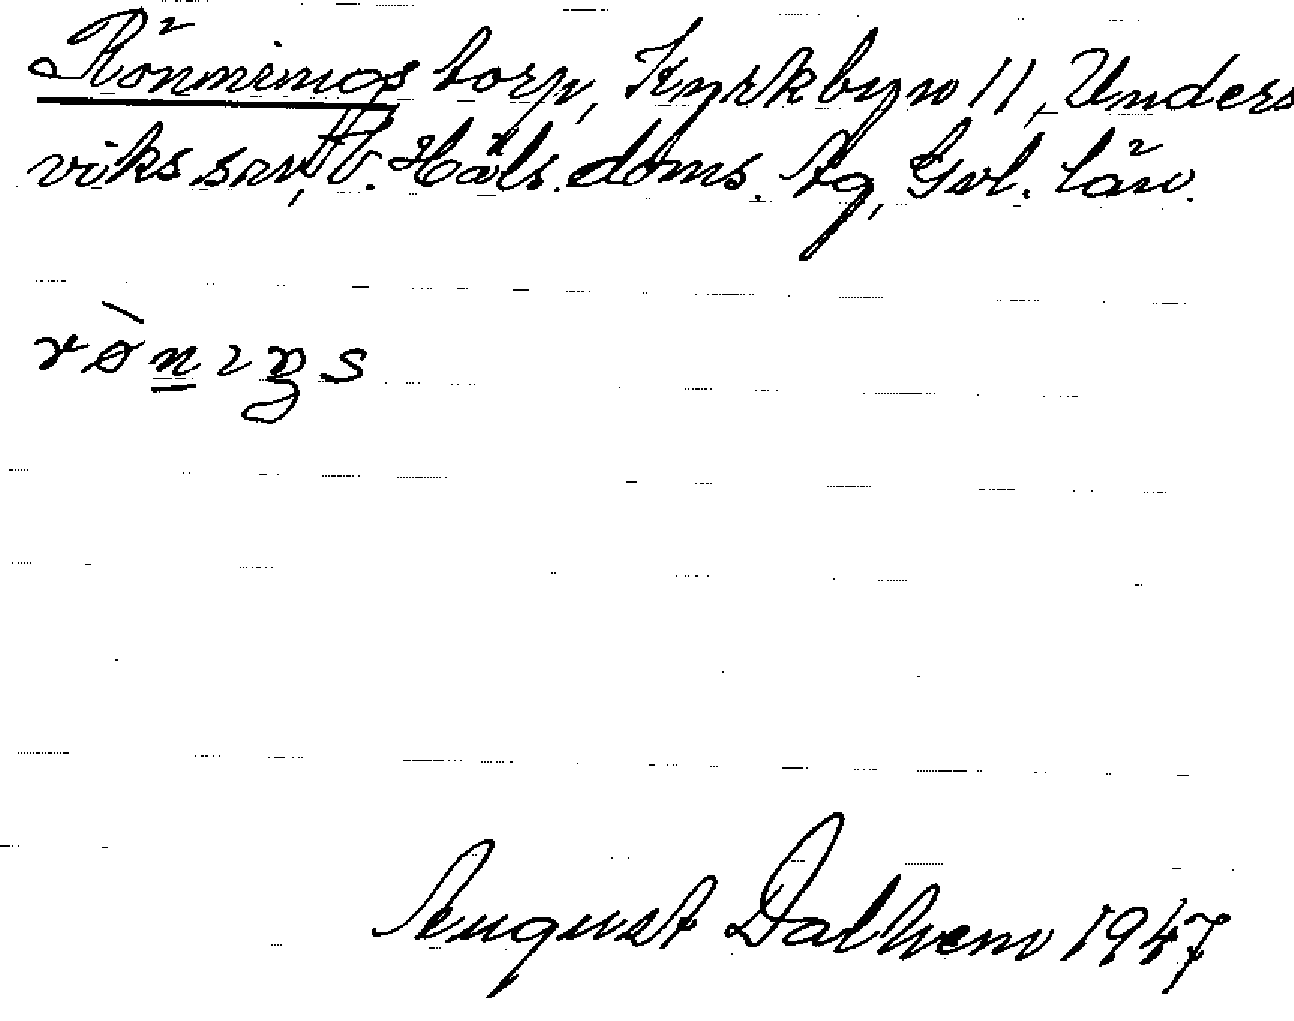 Rönnings torp, Kyrkbyn 11, Unders
viks sn, V. Häls. doms. tg, Gvl. län.
August Dalhem 1947